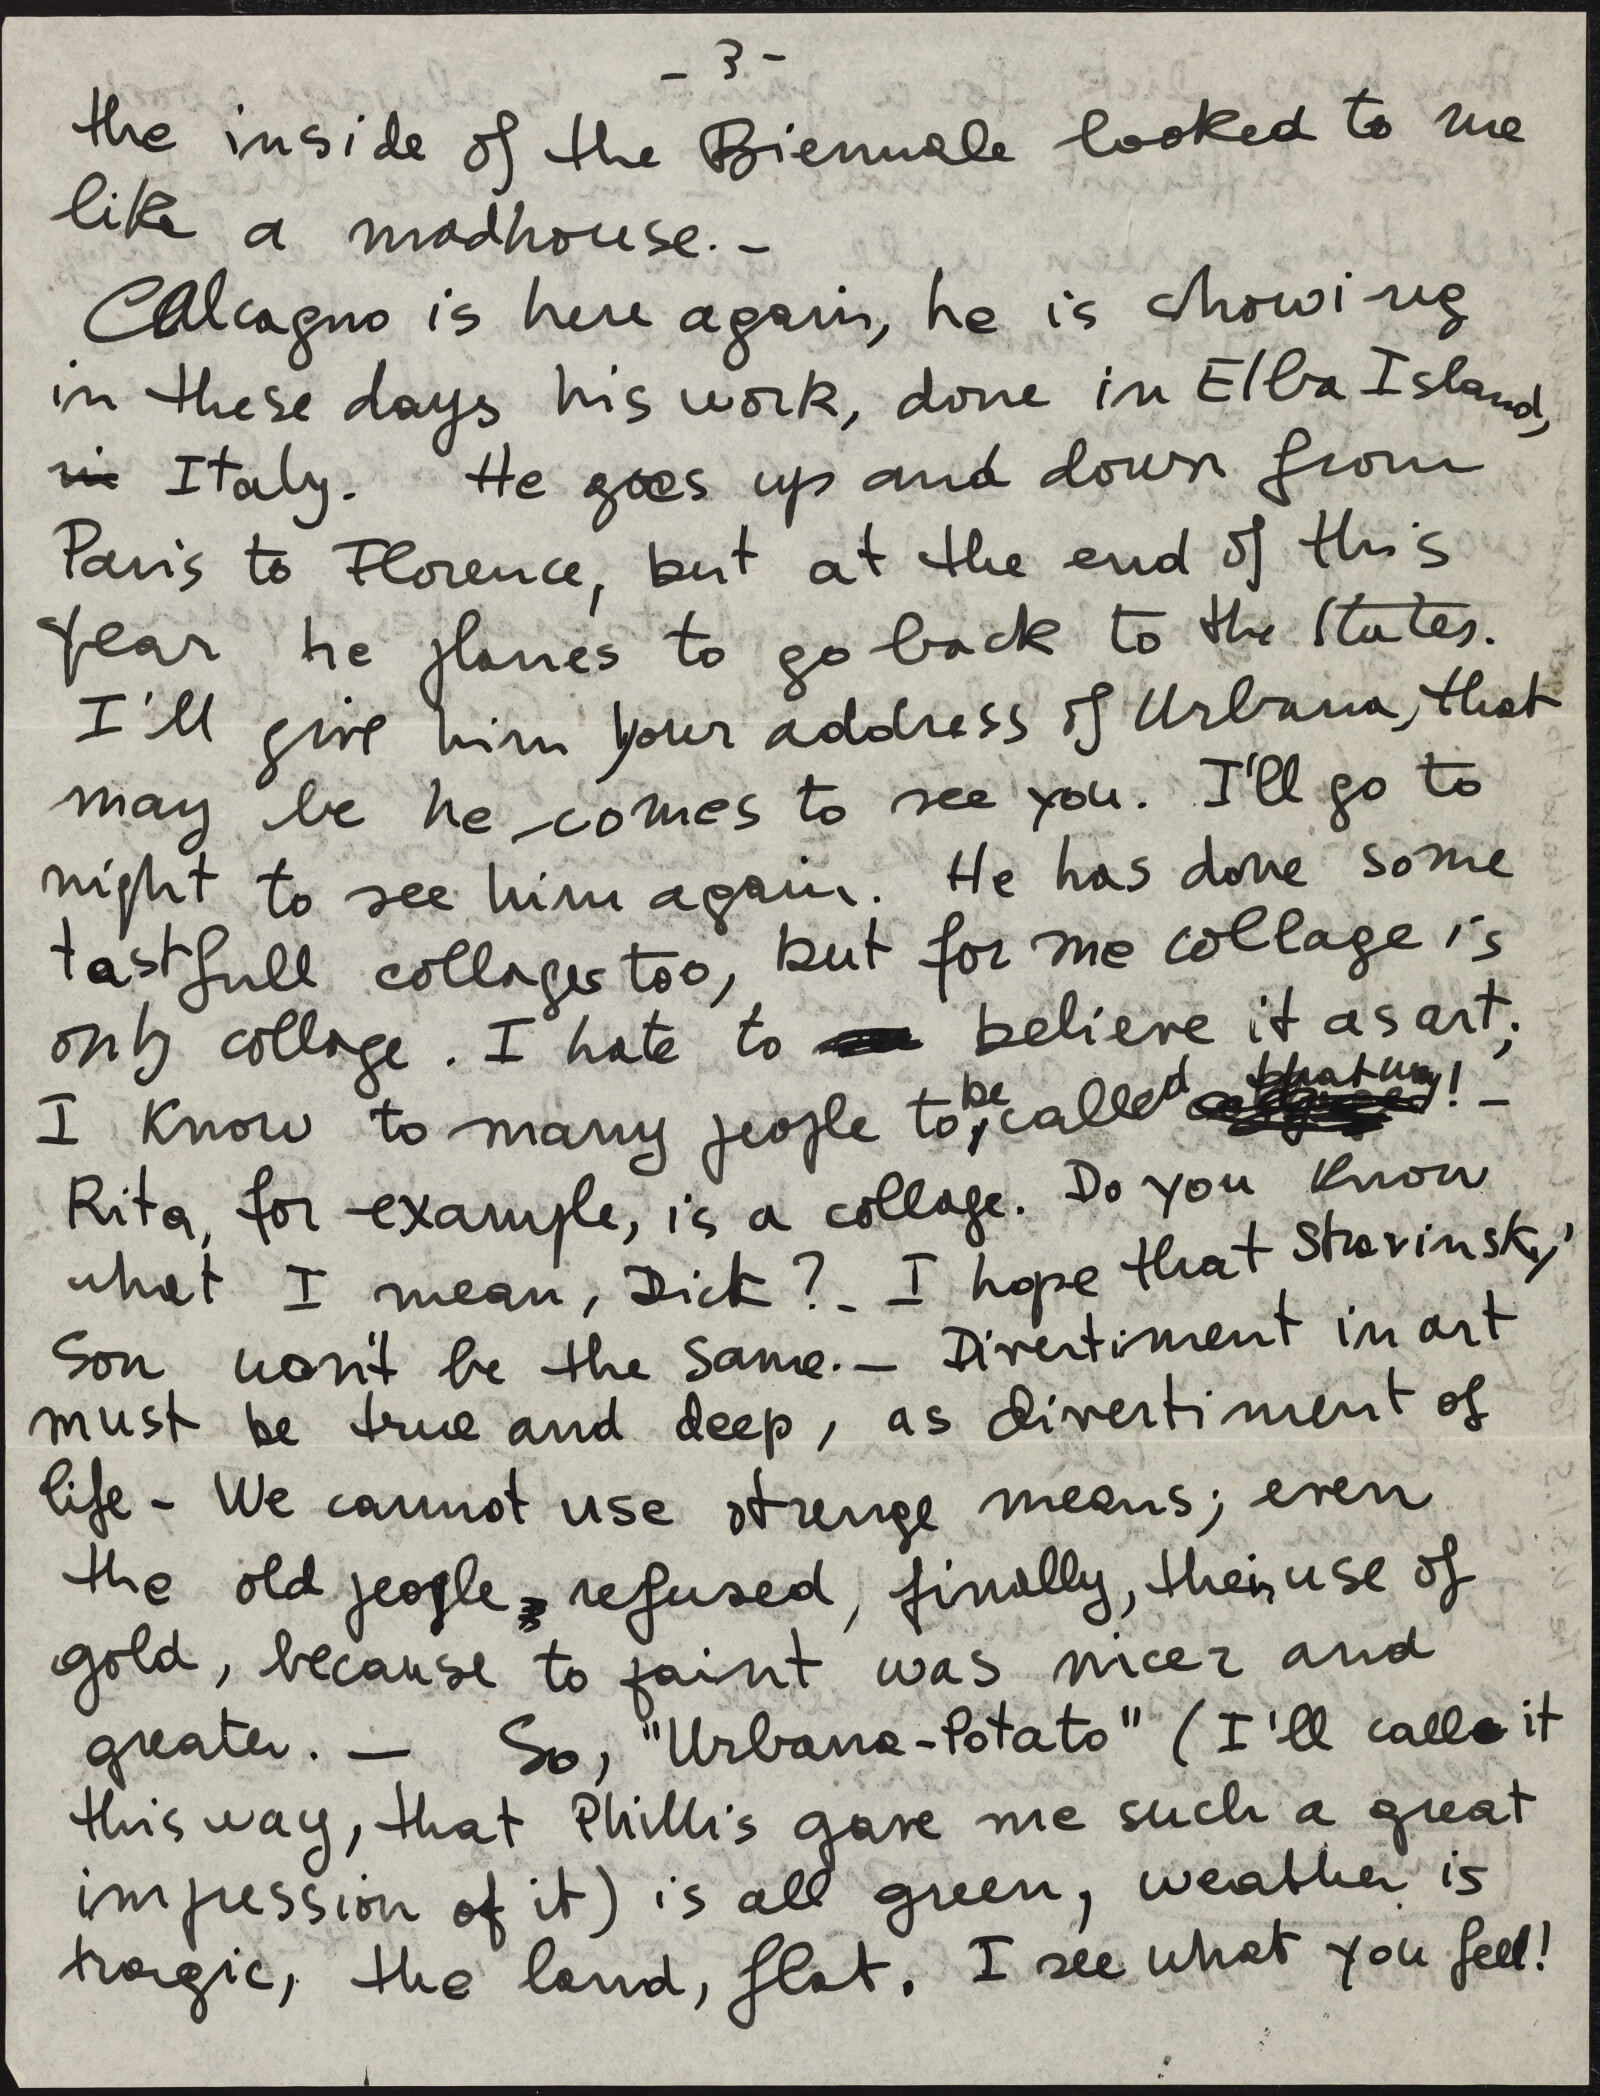 - 3 -
the inside of the Biennale looked to me
like a madhouse. -
Calcagno is here again, he is showing
in these days his work, done in Elba Island,
in Italy. He goes up and down from
Paris to Florence, but at the end of this
year he planes to go back to the States.
I'll give him your address of Urbana, that
may be he comes to see you. I'll go to
night to see him again. He has done some
tastfull collages too, but for me collage is
only collage. I hate to believe it as art;
I know to many people to be called that way! -
Rita, for example, is a collage. Do you know
what I mean, Dick? - I hope that Stravinsky'
Son won't be the same. - Divertiment in art
must be true and deep, as divertiment of
life - We cannot use strenge means; even
the old people refused, finally, their use of
gold, because to paint was nicer and
greater. - So, "Urbana-Potato" (I'll call it
this way, that Phillis gave me such a great
impression of it) is all green, weather is
tragic, the land, flat. I see what you feel!